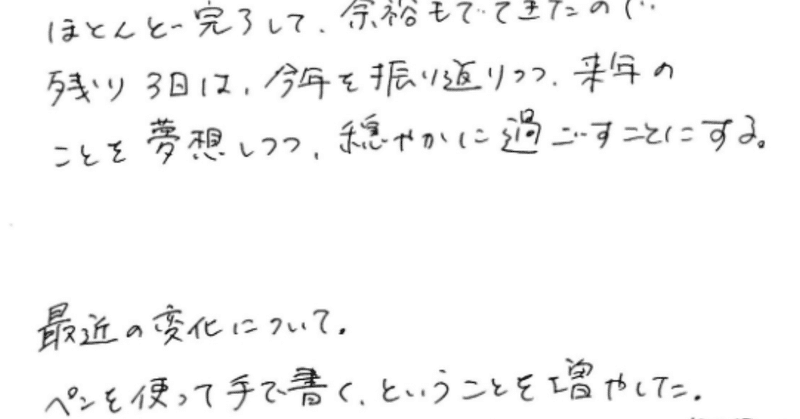 ほとんど完了して、余裕もでてきたので、
残り3日は、今年を振り返りつつ、来年の
ことを夢想しつつ、穏やかに過ごすことにする。
最近の変化について。
ペンを使って手で書く、ということを増やした。